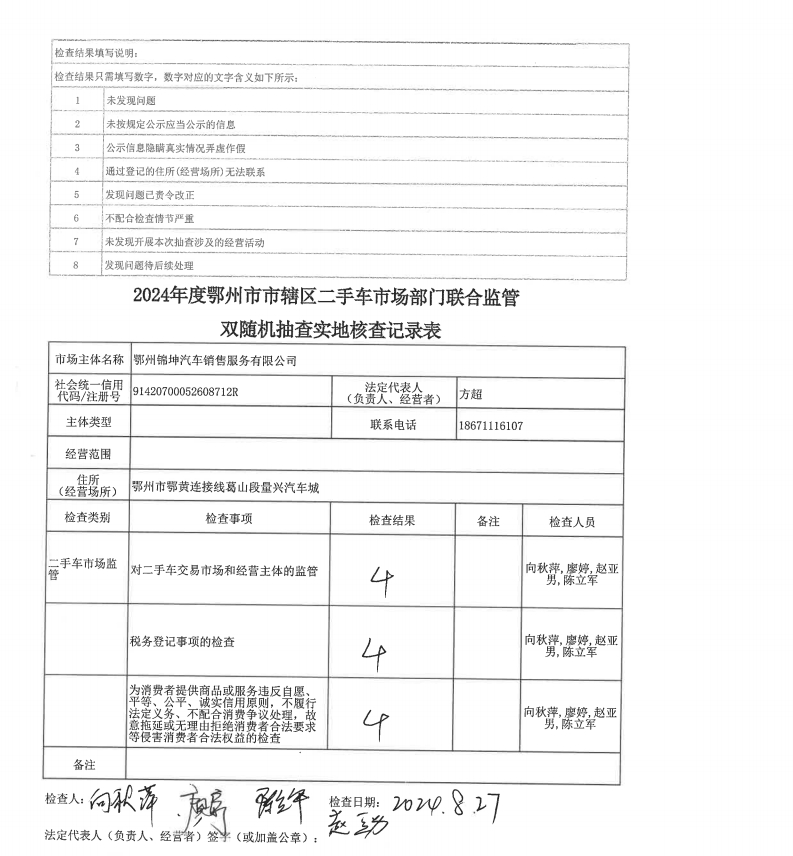 检查结果填写说明：
检查结果只需填写数字，数字对应的文字含义如下所示：
1 未发现问题
2 未按规定公示应当公示的信息
3 公示信息隐瞒真实情况弄虚作假
4 通过登记的住所(经营场所)无法联系
5 发现问题已责令改正
6 不配合检查情节严重
7 未发现开展本次抽查涉及的经营活动
8 发现问题待后续处理
2024年度鄂州市市辖区二手车市场部门联合监管
双随机抽查实地核查记录表
市场主体名称 鄂州锦坤汽车销售服务有限公司
社会统一信用
代码/注册号
91420700052608712R
法定代表人
（负责人、经营者）
方超
主体类型 联系电话 18671116107
经营范围
住所
（经营场所）
鄂州市鄂黄连接线葛山段量兴汽车城
检查类别 检查事项 检查结果 备注 检查人员
二手车市场监
管
对二手车交易市场和经营主体的监管
4
向秋萍,廖婷,赵亚
男,陈立军
税务登记事项的检查
4
向秋萍,廖婷,赵亚
男,陈立军
为消费者提供商品或服务违反自愿、
平等、公平、诚实信用原则，不履行
法定义务、不配合消费争议处理，故
意拖延或无理由拒绝消费者合法要求
等侵害消费者合法权益的检查
4
向秋萍,廖婷,赵亚
男,陈立军
备注
检查人：向秋萍 廖婷 陈立军 检查日期：2024.8.27
赵亚男
法定代表人（负责人、经营者）签字（或加盖公章）：